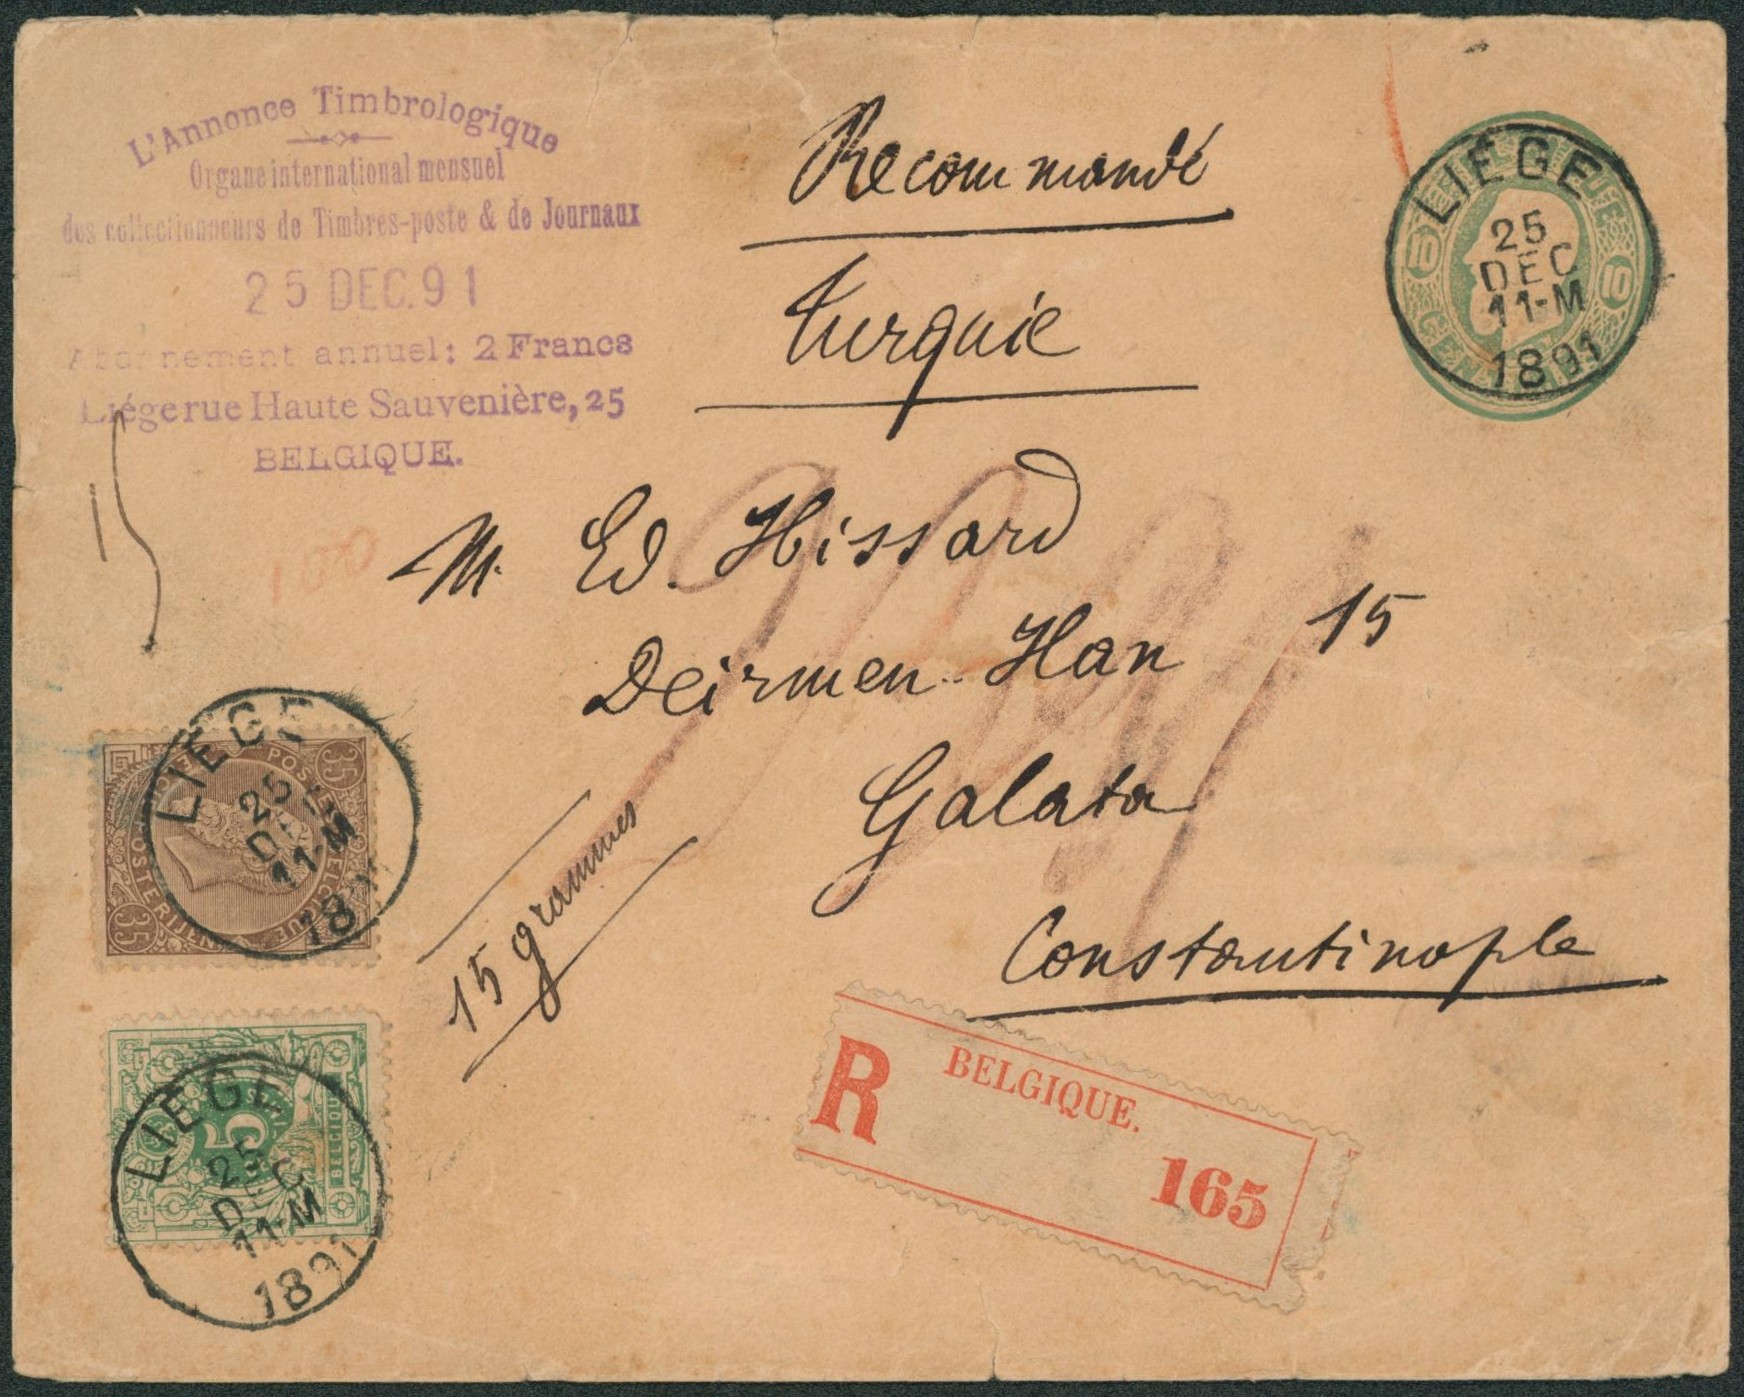 L'Annonce Timbrologique
Organe international mensuel
des collectionneurs de Timbres-poste & de Journaux
25 DEC. 91
Abonnement annuel: 2 Francs
Liége rue Haute Sauvenière, 25
BELGIQUE.
Recommandé
Turquie
LIÉGE
25
DEC
11-M
1891
10
10
15
100
M. Ed. Hissard
Deirmen-Han 15
Galata
Constantinople
15 grammes
LIÉGE
25
11-M
18
35
35
POSTERIJEN
LIÉGE
25
DEC
11-M
1891
5
BELGIQUE
R BELGIQUE.
165